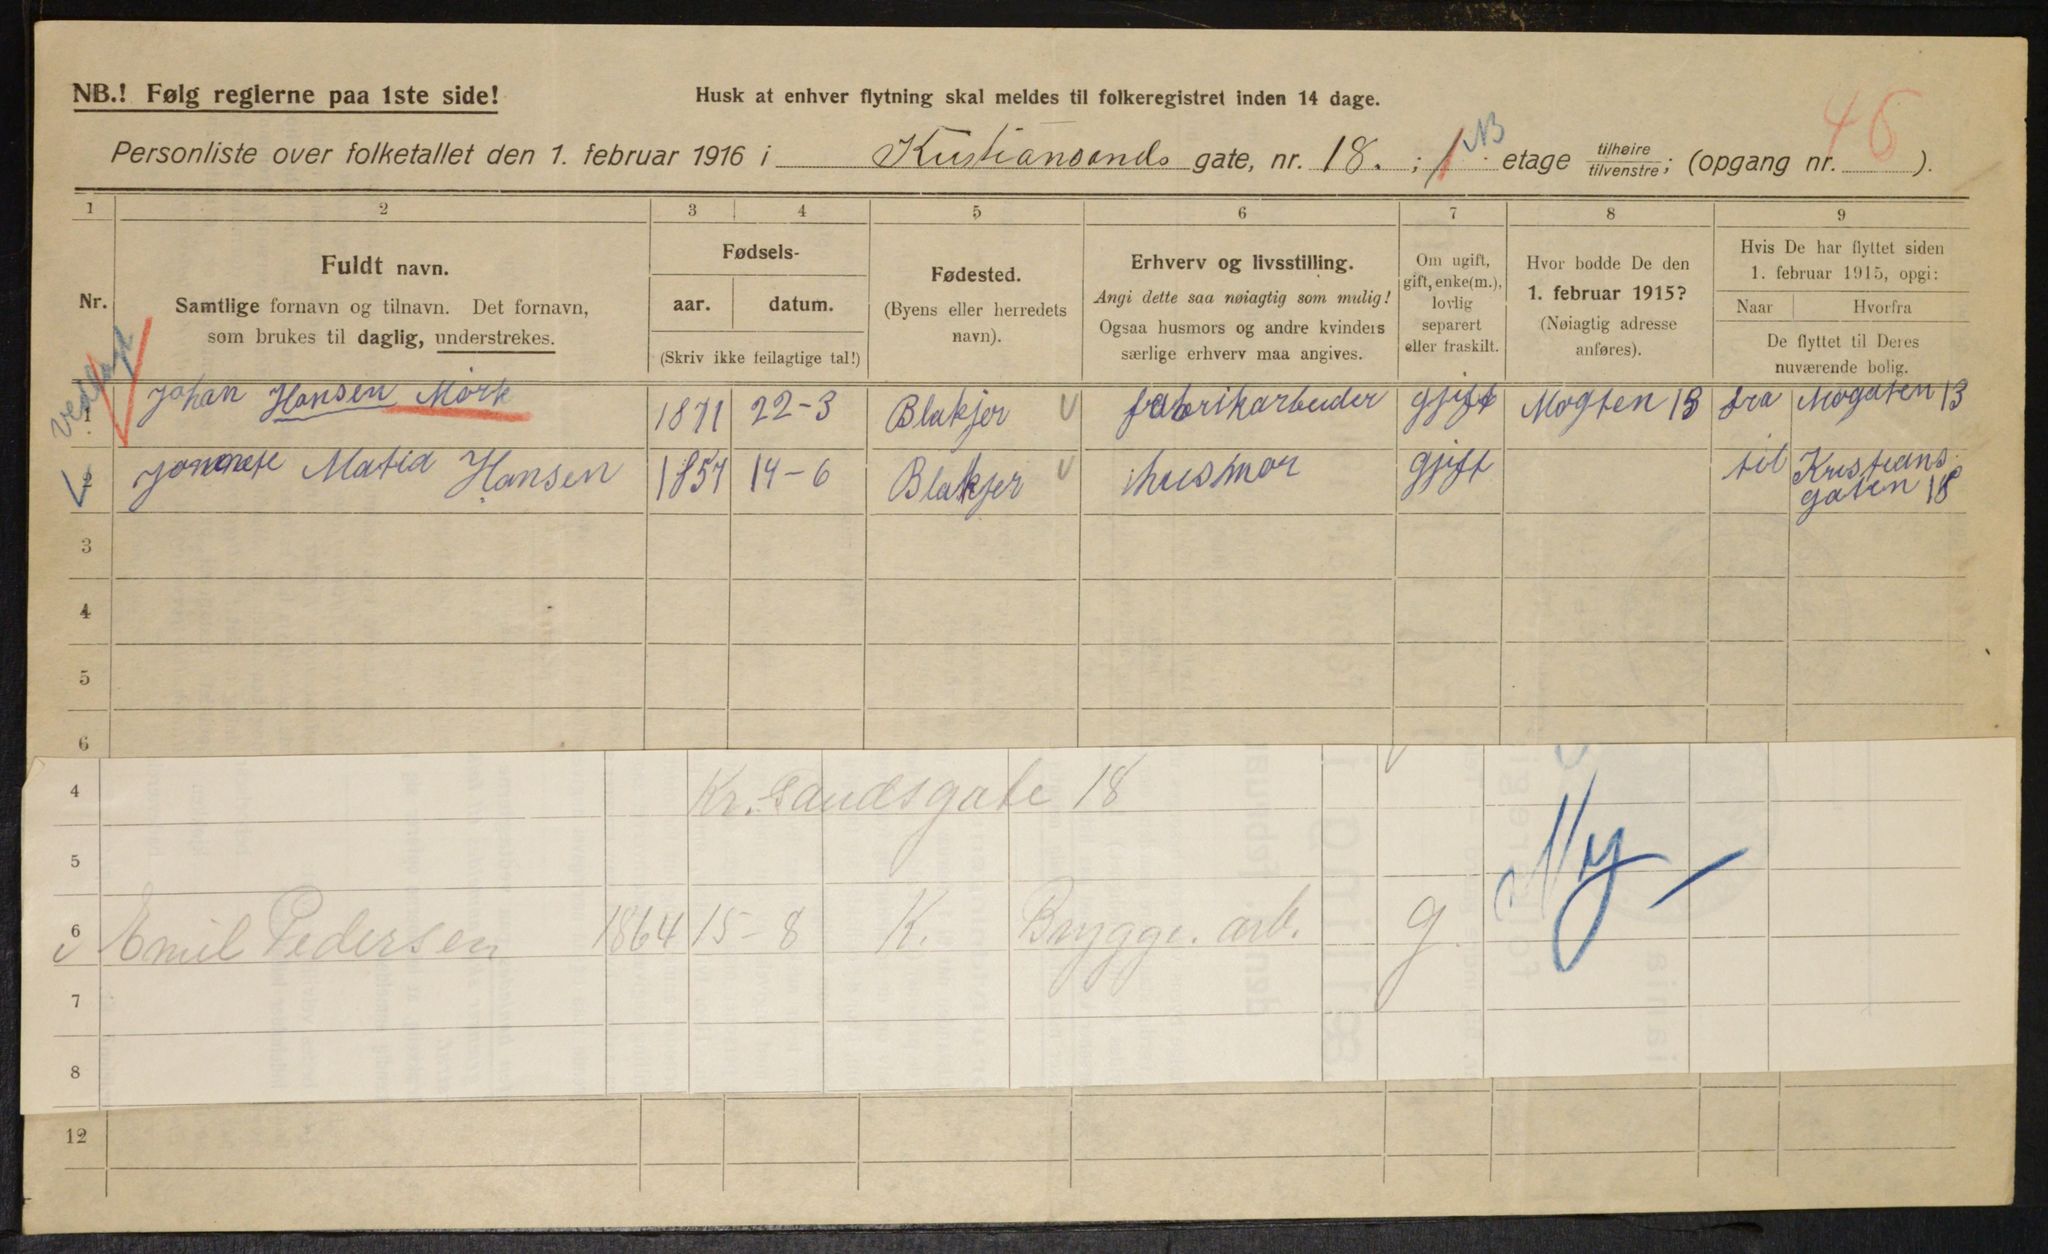 NB.! Følg reglerne paa 1ste side! Husk at enhver flytning skal meldes til folkeregistret inden 14 dage.
46
Personliste over folketallet den 1. februar 1916 i Kristiansands gate, nr. 18. ; 1 NB etage tilhøire tilvenstre; (opgang nr. ).
1 2 3 4 5 6 7 8 9
Nr.
Fuldt navn.
Samtlige fornavn og tilnavn. Det fornavn,
som brukes til daglig, understrekes.
Fødsels-
aar. datum.
(Skriv ikke feilagtige tal!)
Fødested.
(Byens eller herredets
navn).
Erhverv og livsstilling.
Angi dette saa nøiagtig som mulig!
Ogsaa husmors og andre kvinders
særlige erhverv maa angives.
Om ugift,
gift, enke(m.),
lovlig
separert
eller fraskilt.
Hvor bodde De den
1. februar 1915?
(Nøiagtig adresse
anføres).
Hvis De har flyttet siden
1. februar 1915, opgi:
Naar Hvorfra
De flyttet til Deres
nuværende bolig.
1 Johan Hansen Mörk 1871 22-3 Blakjer fabrikarbeider gjift Mogten 13 fra Mogaten 13
2 Matia Hansen 1857 14-6 Blakjer husmor gjift til Kristians
gaten 18
3
4
5
6
4 Kr.sandsgate 18
5
6 Emil Pedersen 1864 15-8 K. Brygge. arb. g. Ny
7
8
12